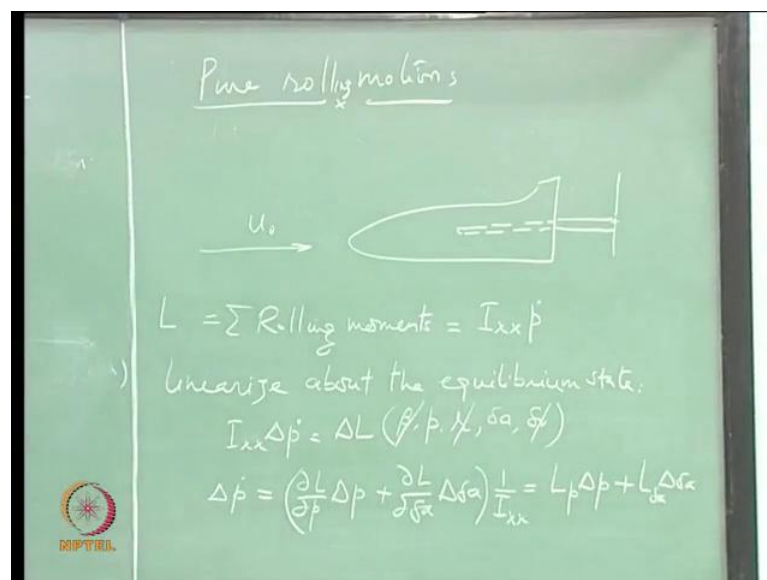 Pure rolling motions
x
U₀
L = Σ Rolling moments = Iₓₓ ṗ
Linearize about the equilibrium state.
Iₓₓ Δṗ = ΔL (β, p, r, δa, δr)
Δṗ = (∂L/∂p Δp + ∂L/∂δa Δδa) 1/Iₓₓ = L_p Δp + L_δa Δδa
NPTEL